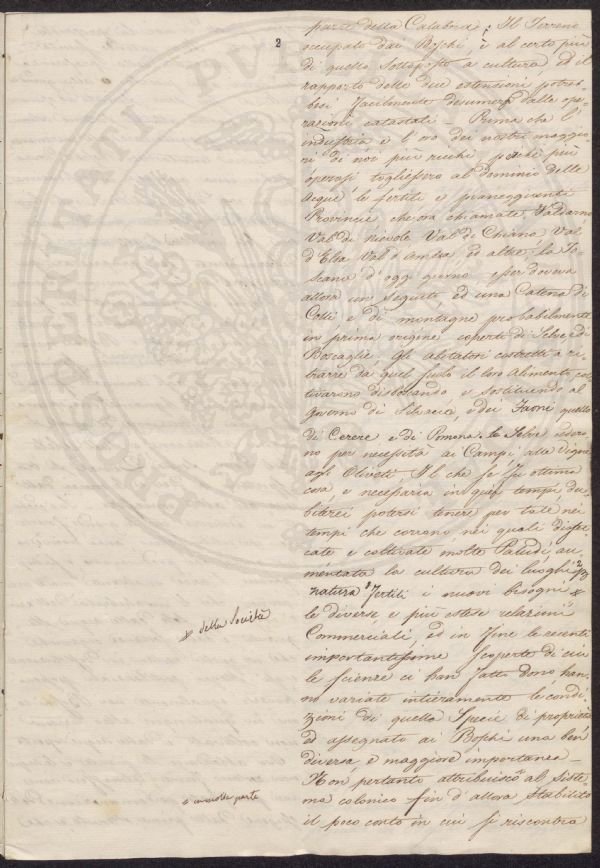 2
parte della Calabria; Il Terreno
occupato dai Boschi, è al certo più
di quello sottoposto a cultura, ed il
rapporto delle due estensioni potreb-
besi facilmente desumere dalle ope-
razioni catastali — Prima che l'
industria e l'oro dei nostri maggio-
ri di noi più ricchi, perchè più
operosi togliessero al dominio delle
acque le fertili e pianeggianti
Provincie che ora chiamate Valdarno
Val di Nievole Val di Chiana Val
d'Elsa Val d'Ambra ed altre, la To-
scana d'oggi giorno esser doveva
allora un seguito ed una Catena di
Colli e di montagne probabilmente
in prima origine coperte di Selve e di
Boscaglie. Gli abitatori costretti a ri-
trarre da quel suolo il loro alimento col-
tivarono disboscando e sostituendo al
governo di Silvano, e dei Fauni quello
di Cerere e di Pomona. le Selve cedero-
no per necessità ai Campi, alle Vigne
agli Oliveti. Il che se fu ottima
cosa, e necessaria in quei tempi du-
biterei potersi tenere per tale nei
tempi che corrono, nei quali disec-
cate e coltivate molte Paludi, au-
mentata la cultura dei luoghi
natura fertili i nuovi bisogni
le diverse e più estese relazioni
Commerciali, ed in fine le recenti
importantissime scoperte di cui
le scienze ci han fatto dono han-
no variate intieramente le condi-
zioni di quella Specie di proprietà
ed assegnato ai Boschi una ben
diversa e maggiore importanza —
Non pertanto attribuisco al Siste-
ma colonico fin d'allora stabilito
il poco conto in cui si riscontra
della Società
in molta parte
PVBLICAE